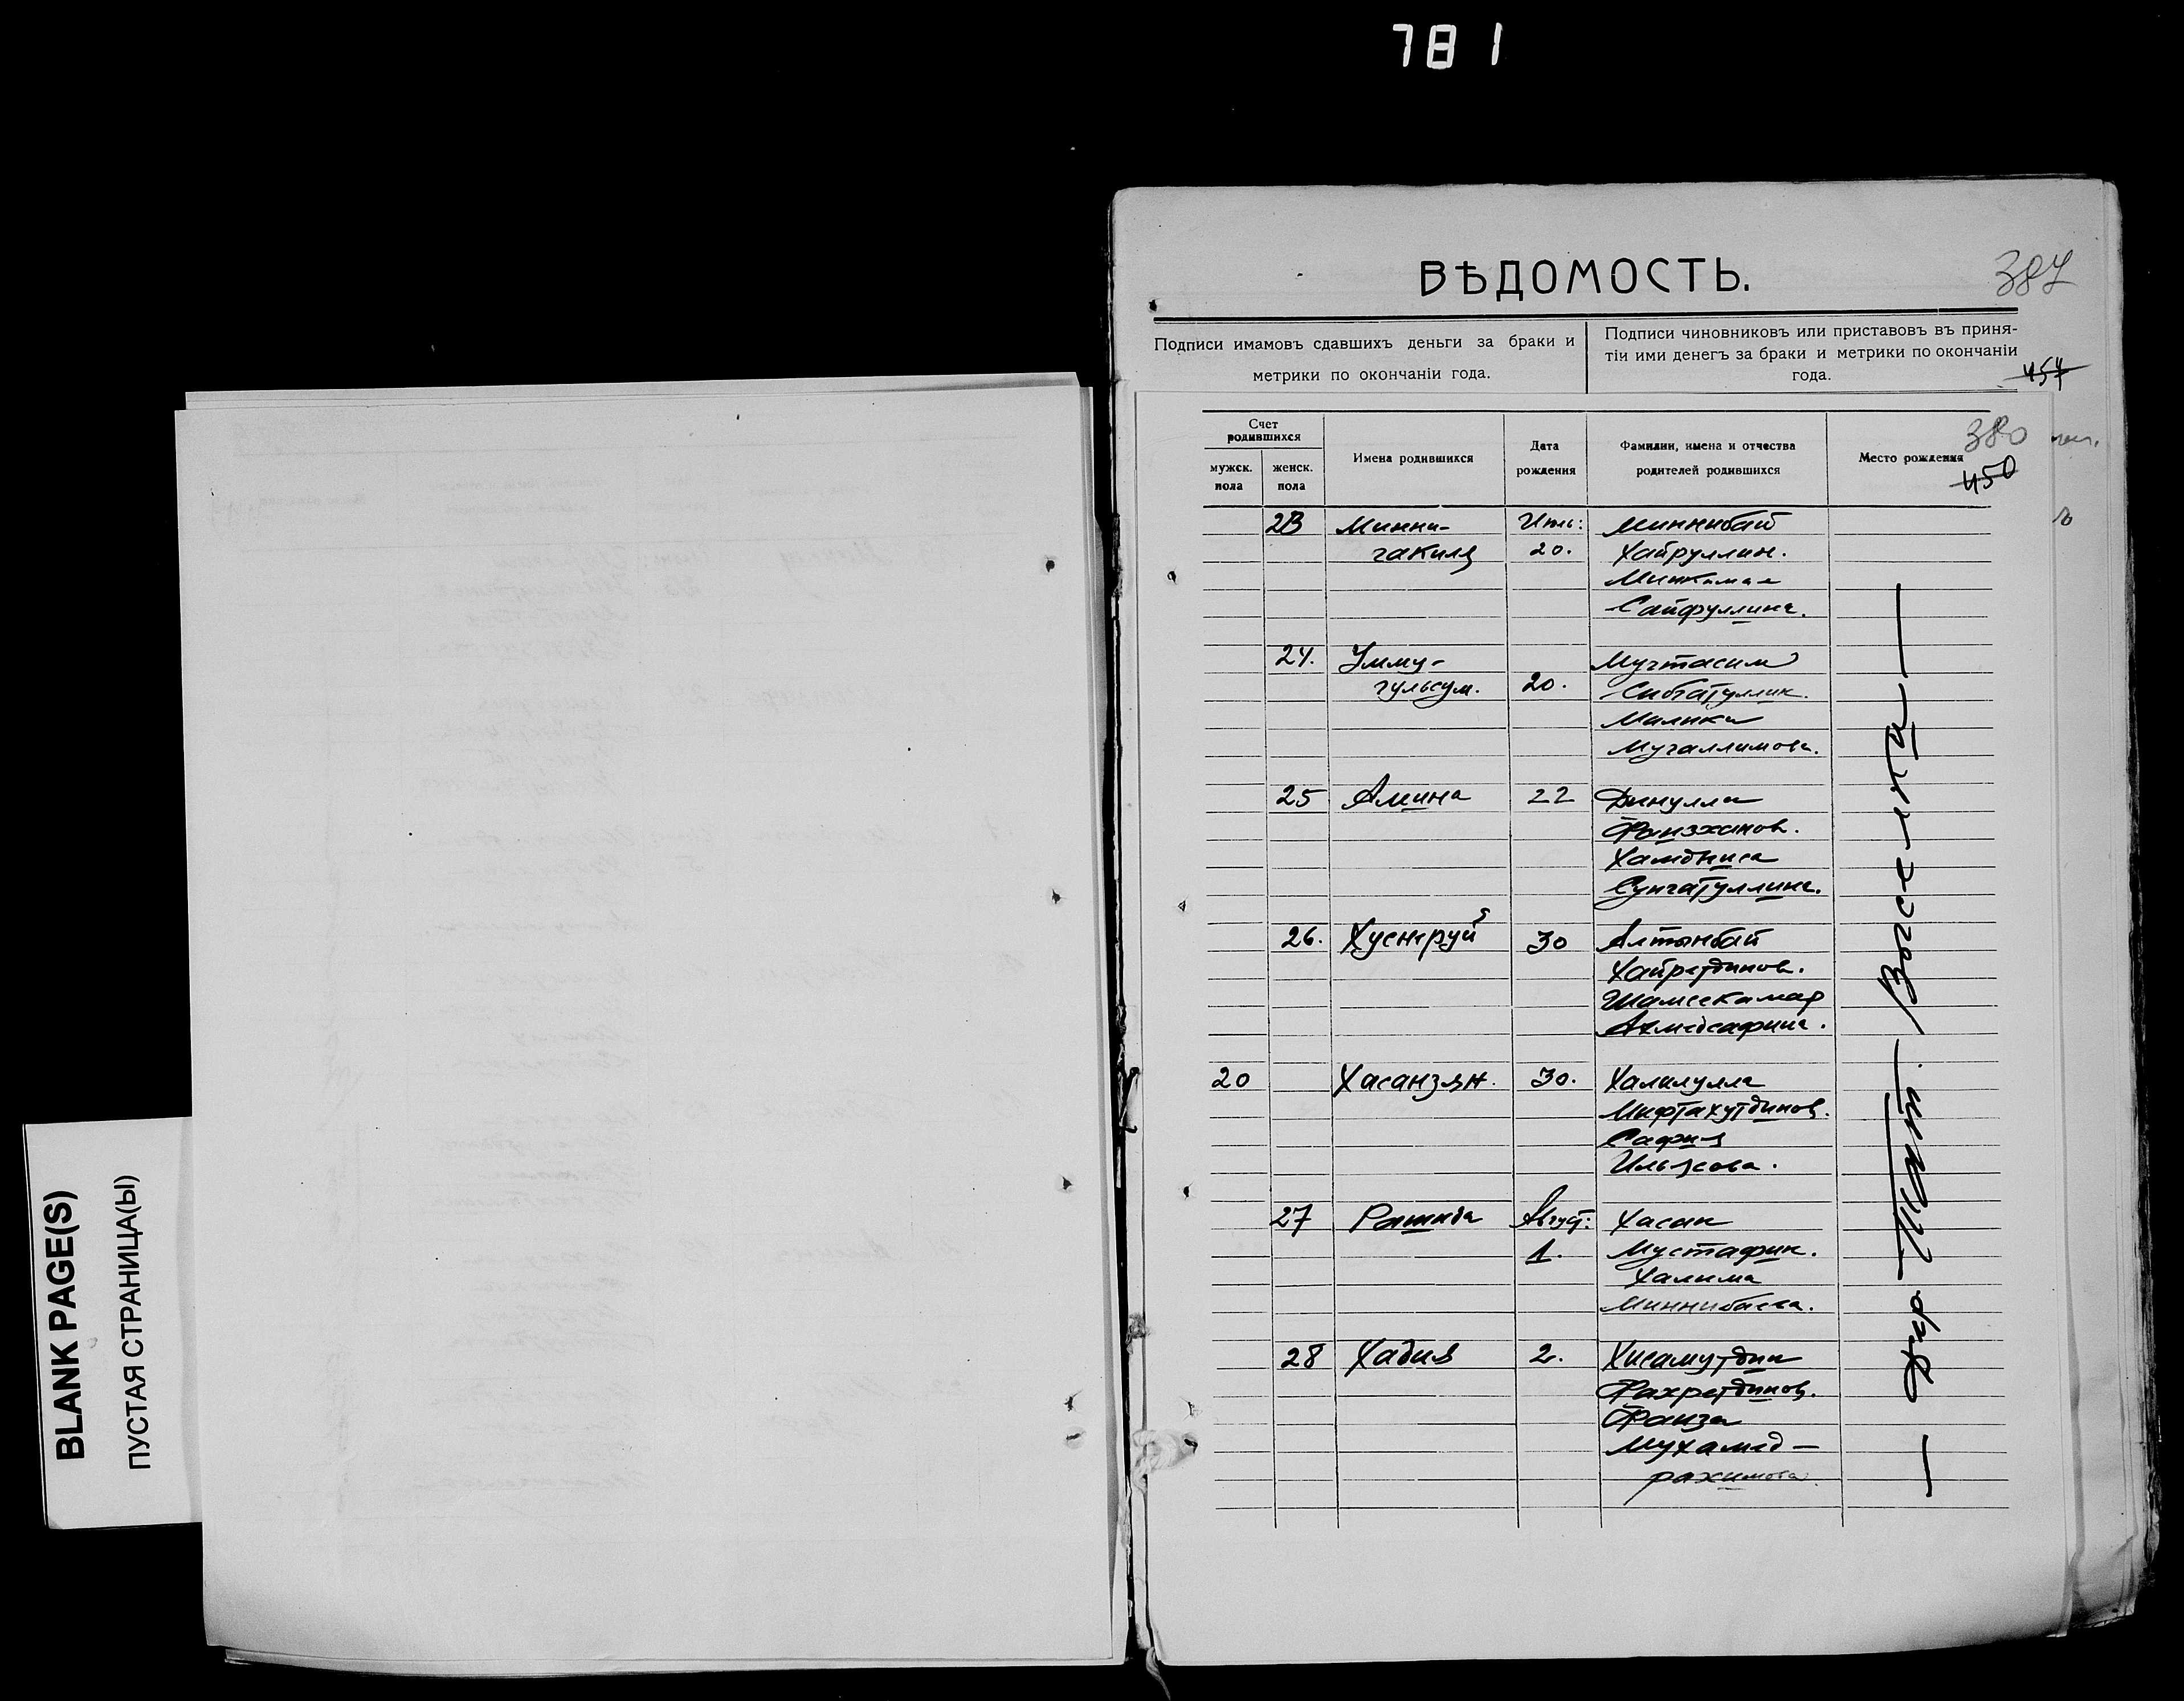 781
BLANK PAGE(S)
ПУСТАЯ СТРАНИЦА(Ы)
ВѢДОМОСТЬ.
387
Подписи имамовъ сдавшихъ деньги за браки и
метрики по окончаніи года.
Подписи чиновниковъ или приставовъ въ приня-
тіи ими денегъ за браки и метрики по окончаніи
года.
457
380
450
Счет
родившихся
мужск.
пола
женск.
пола
Имена родившихся
Дата
рождения
Фамилии, имена и отчества
родителей родившихся
Место рождения
23 Минни- Июль: Миннибай
гакиля 20. Хайруллин.
Минкамал
Сайфуллина.
24. Умму- Мугтасим
гульсум. 20. Сибгатуллин.
Малика
Мугаллимова.
25 Амина 22 Динулла
Фаизханов.
Хамдниса
Сунгатуллина.
26. Хуснеруй 30 Алтынбай
Хайретдинов.
Шамсекамар
Ахмедсафина.
20 Хасанзян. 30. Халилулла
Мифтахутдинов.
Сафия
Ильясова.
27 Рашида Август: Хасан
1. Мустафин.
Халима
Миннибаева.
28 Хадия 2. Хисамутдин
Фахретдинов.
Фаиза
Мухамед-
рахимова